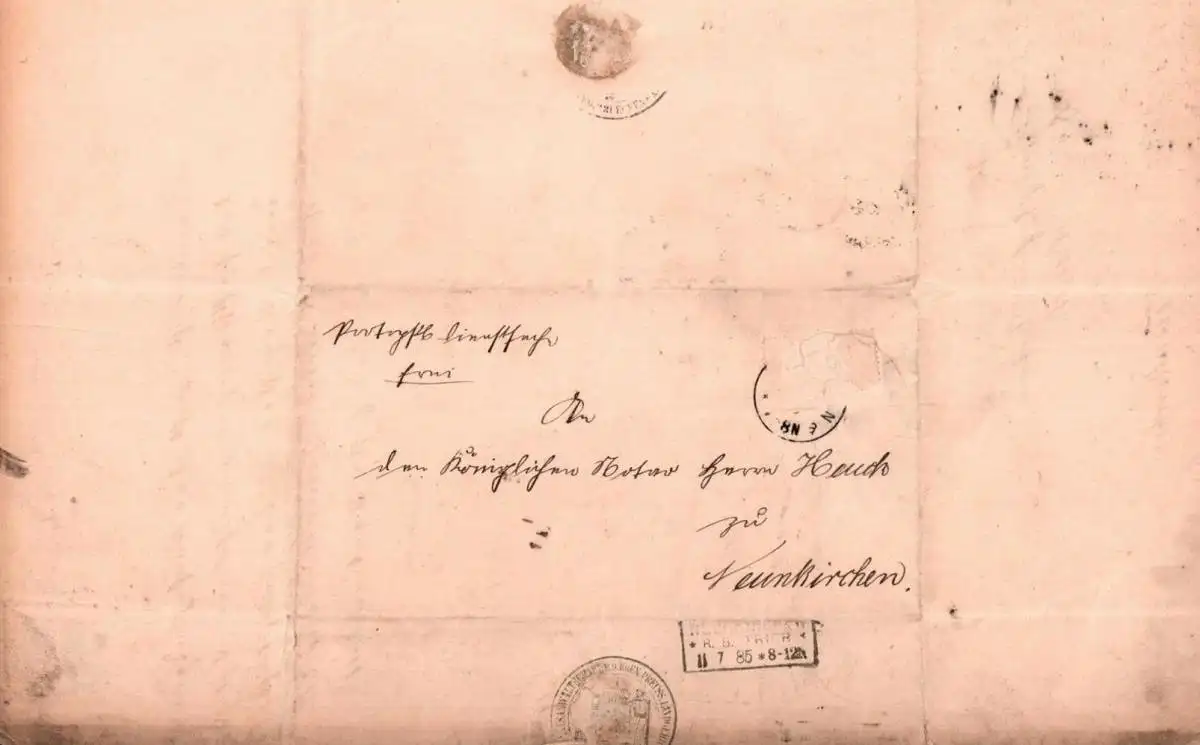 Portopfl. Dienstsache
frei
An
den Königlichen Notar Herrn Hauck
zu
Neunkirchen.
* R. B. TRIER *
11 7 85 * 8-12